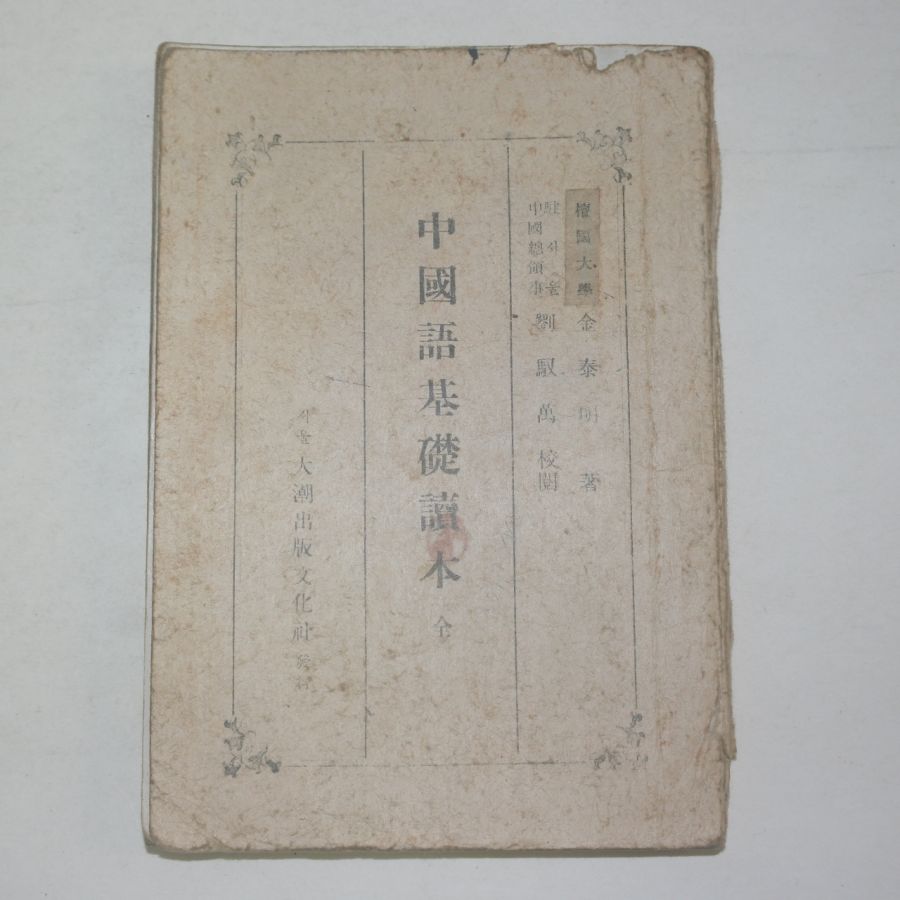 檀國大學 金泰明 著
駐서울
中國總領事 劉馭萬 校閱
中國語基礎讀本 全
서울 大潮出版文化社 發行